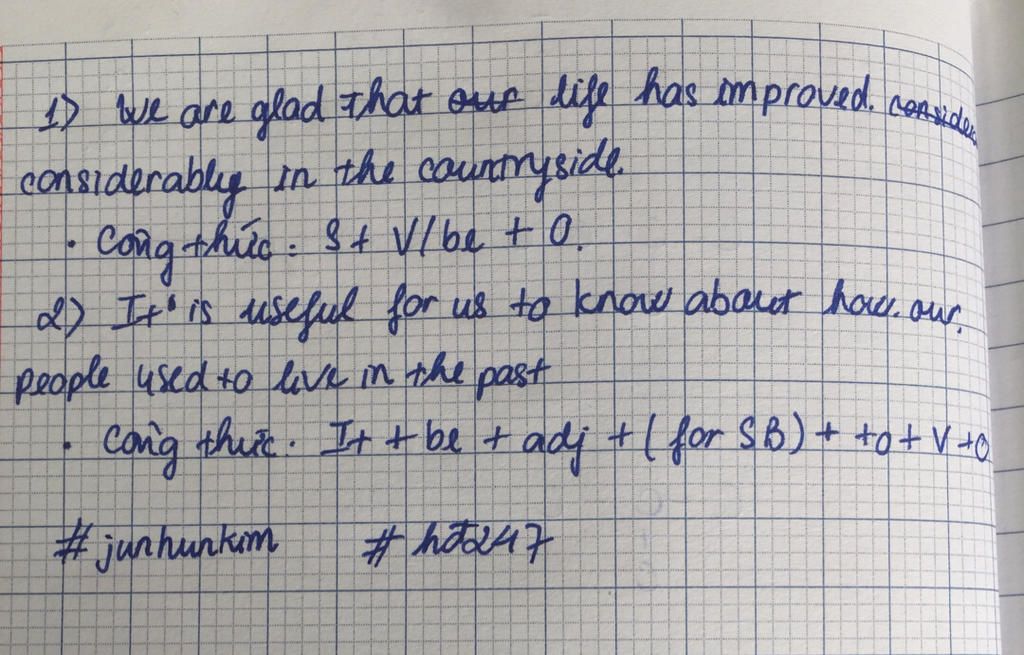 1) We are glad that our life has improved. conside
considerably in the countryside.
• Công thức: S + V/be + O.
2) It' is useful for us to know about how. our.
people used to live in the past
• Công thức. It + be + adj + ( for SB ) + to + V + O
#junhunkim #hđ247